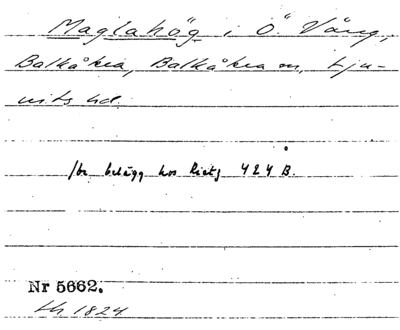 Maglahög i Ö. Väng,
Balkåkra, Balkåkra sn, Lju-
nits hd.
/br belägg hos Rietz 424 B.
Nr 5662.
Lh 1824